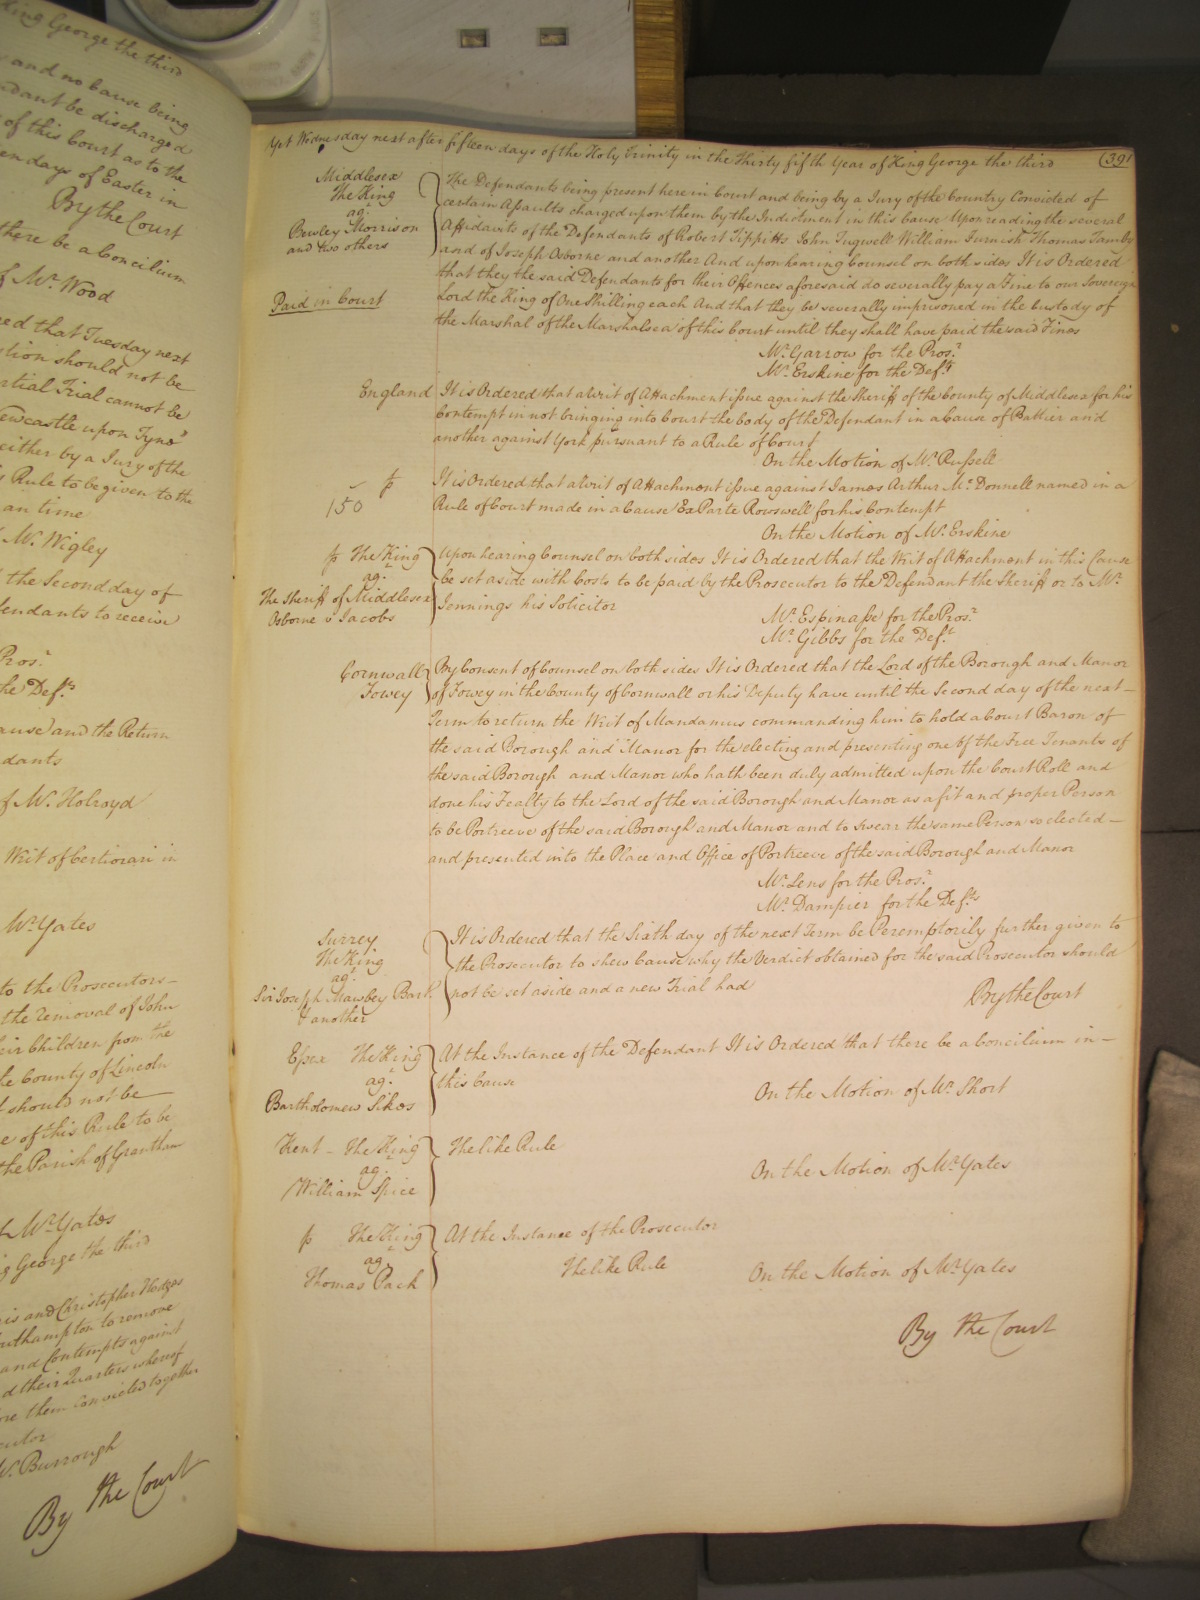 ding George the third
and no Cause being
dant be discharged
of this Court as to the
en days of Easter in
By the Court
there be a Concilium
of Mr. Wood
red that Tuesday next
tion should not be
artial Trial cannot be
ewcastle upon Tyne
either by a Jury of the
s Rule to be given to the
an time
Mr. Wigley
the Second day of
fendants to receive
Pros.r
the Def.ts
ause and the Return
dants
of Mr. Holroyd
Writ of Certiorari in
Mr. Yates
to the Prosecutors
the removal of John
eir Children from the
the County of Lincoln
should not be
e of this Rule to be
the Parish of Grantham
Mr. Yates
g George the third
is and Christopher Hodges
outhampton to remove
and Contempts against
d their Quarters whereof
ore them Convicted together
cutor
Mr. Burrough
By the Court
Yet Wednesday next after fifteen days of the Holy Trinity in the Thirty fifth Year of King George the third
(391
Middlesex
The King
ag.
Bewley Morrison
and two others
Paid in Court
The Defendants being present here in Court and being by a Jury of the Country Convicted of
certain Assaults charged upon them by the Indictment in this Cause Upon reading the several
Affidavits of the Defendants of Robert Tippitts John Tugwell William Furnish Thomas
and of Joseph Osborne and another And upon hearing Counsel on both sides It is Ordered
that they the said Defendants for their Offences aforesaid do severally pay a Fine to our Sovereign
Lord the King of One Shilling each And that they be severally imprisoned in the Custody of
the Marshal of the Marshalsea of this Court until they shall have paid the said Fines
Mr. Garrow for the Pros.r
Mr. Erskine for the Def.ts
England
It is Ordered that a Writ of Attachment issue against the Sheriff of the County of Middlesex for his
Contempt in not bringing into Court the body of the Defendant in a Cause of Battier and
another against York pursuant to a Rule of Court
On the Motion of Mr. Russell
fs
150
It is Ordered that a Writ of Attachment issue against James Arthur Mc.Donnell named in a
Rule of Court made in a Cause Ex Parte Rouswell for his Contempt
On the Motion of Mr. Erskine
fs The King
ag.
The Sheriff of Middlesex
Osborne v Jacobs
Upon hearing Counsel on both sides It is Ordered that the Writ of Attachment in this Cause
be set aside with Costs to be paid by the Prosecutor to the Defendant the Sheriff or to Mr.
Jennings his Solicitor
Mr. Espinasse for the Pros.r
Mr. Gibbs for the Def.t
Cornwall
Fowey
By Consent of Counsel on both sides It is Ordered that the Lord of the Borough and Manor
of Fowey in the County of Cornwall or his Deputy have until the Second day of the next
Term to return the Writ of Mandamus commanding him to hold a Court Baron of
the said Borough and Manor for the electing and presenting one of the Free Tenants of
the said Borough and Manor who hath been duly admitted upon the Court Roll and
done his Fealty to the Lord of the said Borough and Manor as a fit and proper Person
to be Portreeve of the said Borough and Manor and to swear the same Person so elected
and presented into the Place and Office of Portreeve of the said Borough and Manor
Mr. Lens for the Pros.r
Mr. Dampier for the Def.ts
Surrey
The King
ag.t
Sir Joseph Mawbey Bart.
& another
It is Ordered that the Sixth day of the next Term be Peremptorily further given to
the Prosecutor to shew Cause why the Verdict obtained for the said Prosecutor should
not be set aside and a new Trial had
By the Court
Essex The King
ag.t
Bartholomew Sikes
At the Instance of the Defendant It is Ordered that there be a Concilium in
this Cause
On the Motion of Mr. Short
Kent The King
ag.
William Spice
The like Rule
On the Motion of Mr. Yates
fs The King
ag.
Thomas Pack
At the Instance of the Prosecutor
The like Rule
On the Motion of Mr. Yates
By the Court